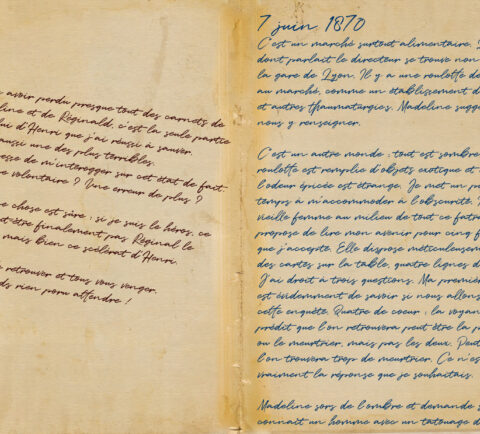 avoir perdu presque tout des carnets de
line et de Réginald, c'est la seule partie
lui d'Henri que j'ai réussi à sauver.
aussi une des plus terribles.
esse de m'interoger sur cet état de fait
e volontaire ? Une erreur de plus ?
e chose est sûre : si je suis le héros, ce
et être finalement pas Réginal le
mais bien ce scélérat d'Henri.
retrouver et tous vous venger.
ds rien poru attendre !
7 juin 1870
C'est un marché surtout alimentaire.
dont parlait le directeur se trouve non
la gare de Lyon. Il y a une roulotte de
au marché, comme un établissement d
et autres thaumaturgies. Madeline sugg
nous y renseigner.
C'est un autre monde : tout est sombre
roulotte est remplie d'objets exotique et
l'odeur épicée est étrange. Je met un p
temps à m'accommoder à l'obscurité.
vieille femme au milieu de tout ce fatra
propose de lire mon avenir pour cinq f
que j'accepte. Elle dispose méticuleusem
des cartes sur la table, quatre lignes d
J'ai droit à trois questions. Ma premiè
est évidemment de savoir si nous allons
cette enquête. Quatre de coeur : la voyan
prédit que l'on retrouvera peut être la p
ou le meurtrier, mais pas les deux. Peut
l'on trouvera trop de meurtrier. Ce n'es
vraiment la réponse que je souhaitais.
Madeline sors de l'ombre et demande s
connait un homme avec un tatouage d